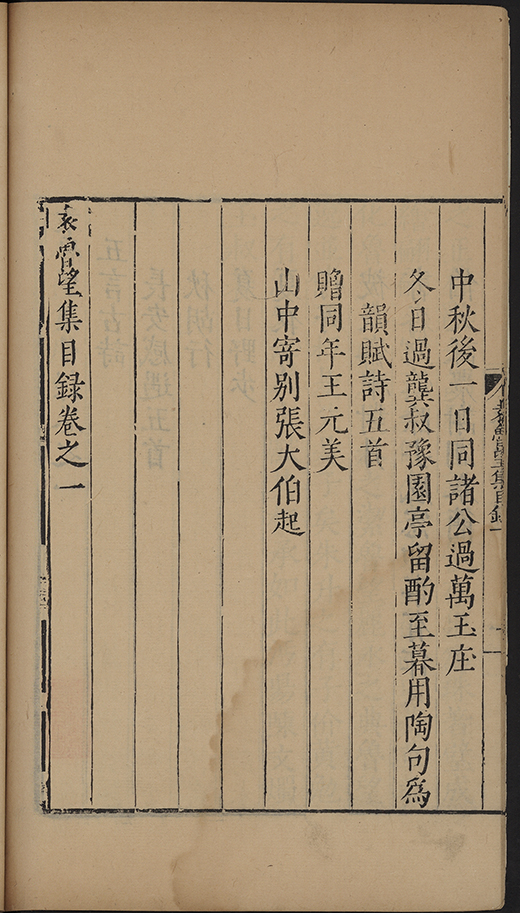 中秋後一日同諸公過萬玉庄
冬日過龔叔豫園亭留酌至暮用陶句為
韻賦詩五首
贈同年王元美
山中寄别張大伯起
袁魯望集目録卷之一